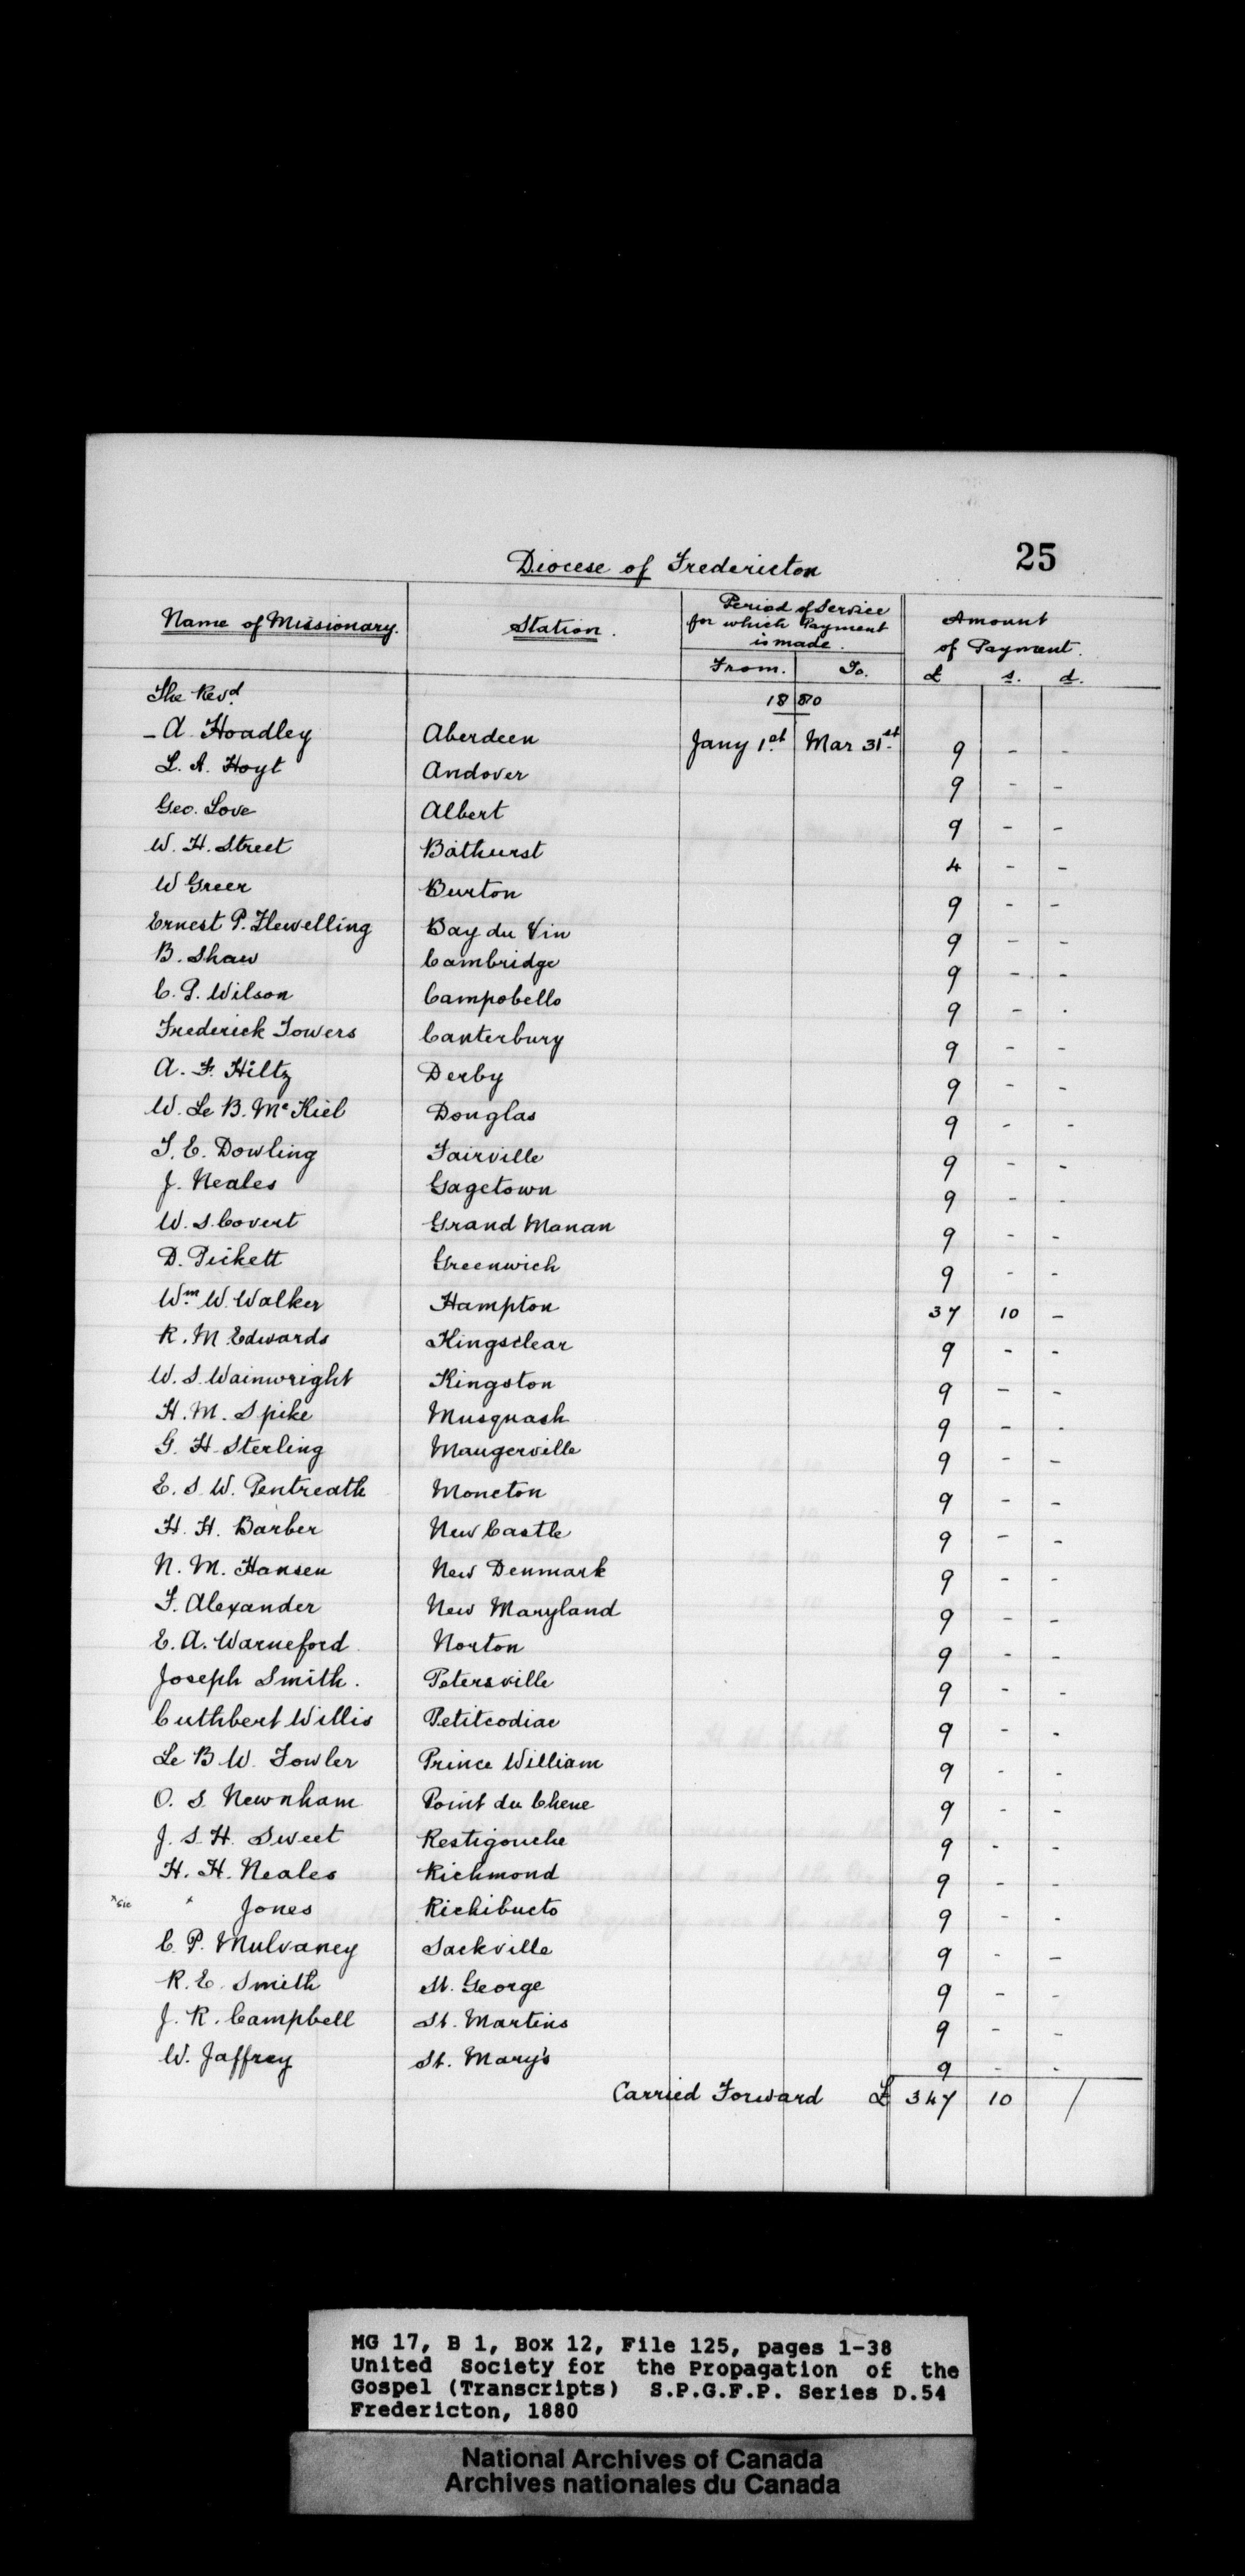 25
Diocese of Fredericton
Name of Missionary. Station. Period of Service for which Payment is made. Amount of Payment.
From. To. £ s. d.
The Revd. 1880
- A. Hoadley Aberdeen Jany 1st. Mar 31st. 9 - -
L. A. Hoyt Andover 9 - -
Geo. Love Albert 9 - -
W. H. Street Bathurst 4 - -
W Greer Burton 9 - -
Ernest P. Flewelling Bay du Vin 9 - -
B. Shaw Cambridge 9 - -
C. P. Wilson Campobello 9 - -
Frederick Towers Canterbury 9 - -
A. F. Hiltz Derby 9 - -
W. Le B. McKiel Douglas 9 - -
T. E. Dowling Fairville 9 - -
J. Neales Gagetown 9 - -
W. S. Covert Grand Manan 9 - -
D. Pickett Greenwich 9 - -
Wm. W. Walker Hampton 37 10 -
R. M. Edwards Kingsclear 9 - -
W. S. Wainwright Kingston 9 - -
H. M. Spike Musquash 9 - -
G. H. Sterling Maugerville 9 - -
E. S. W. Pentreath Moncton 9 - -
H. H. Barber New Castle 9 - -
N. M. Hansen New Denmark 9 - -
F. Alexander New Maryland 9 - -
E. A. Warneford Norton 9 - -
Joseph Smith. Petersville 9 - -
Cuthbert Willis Petitcodiac 9 - -
Le B W. Fowler Prince William 9 - -
O. S. Newnham Point du Chene 9 - -
J. S. H. Sweet Restigouche 9 - -
H. H. Neales Richmond 9 - -
x sic x Jones Richibucto 9 - -
C. P. Mulvaney Sackville 9 - -
R. E. Smith St. George 9 - -
J. R. Campbell St. Martins 9 - -
W. Jaffrey St. Mary's 9 - -
Carried Forward £ 347 10 /
MG 17, B 1, Box 12, File 125, pages 1-38
United Society for the Propagation of the
Gospel (Transcripts) S.P.G.F.P. Series D.54
Fredericton, 1880
National Archives of Canada
Archives nationales du Canada